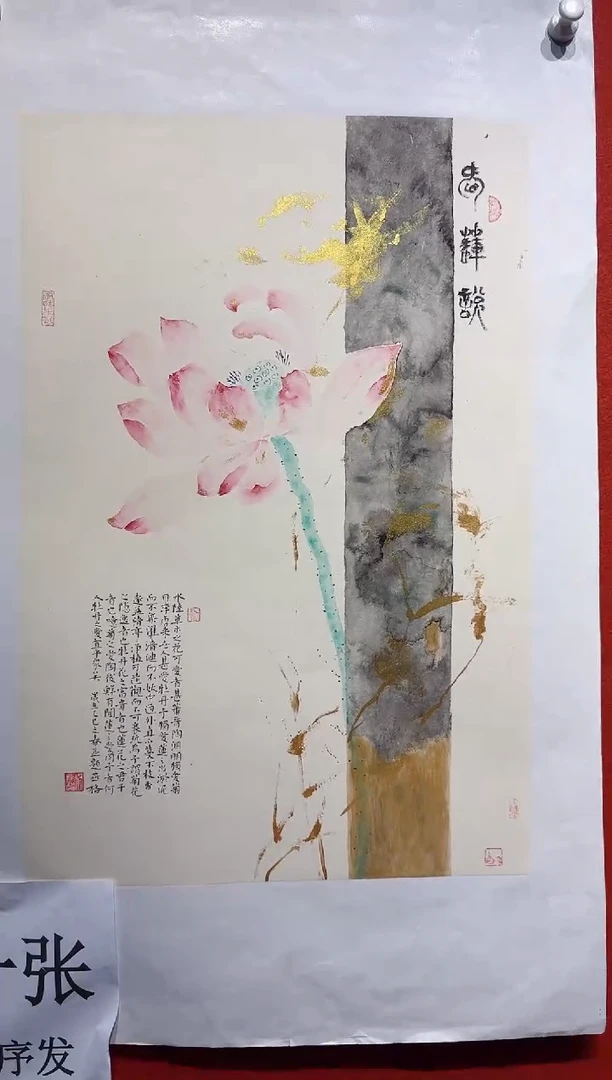 愛蓮說
水陸草木之花可愛者甚蕃晉陶淵明獨愛菊
甚愛牡丹予獨愛蓮之出淤泥
而不染濯清漣而不妖中通外直不蔓不枝香
遠益清亭亭淨植可遠觀而不可褻玩焉予謂菊花
之隱逸者也牡丹花之富貴者也蓮花之君子
者也噫菊之愛陶後鮮有聞蓮之愛同予者何
人牡丹之愛宜乎眾矣 乙巳之春
张
序发